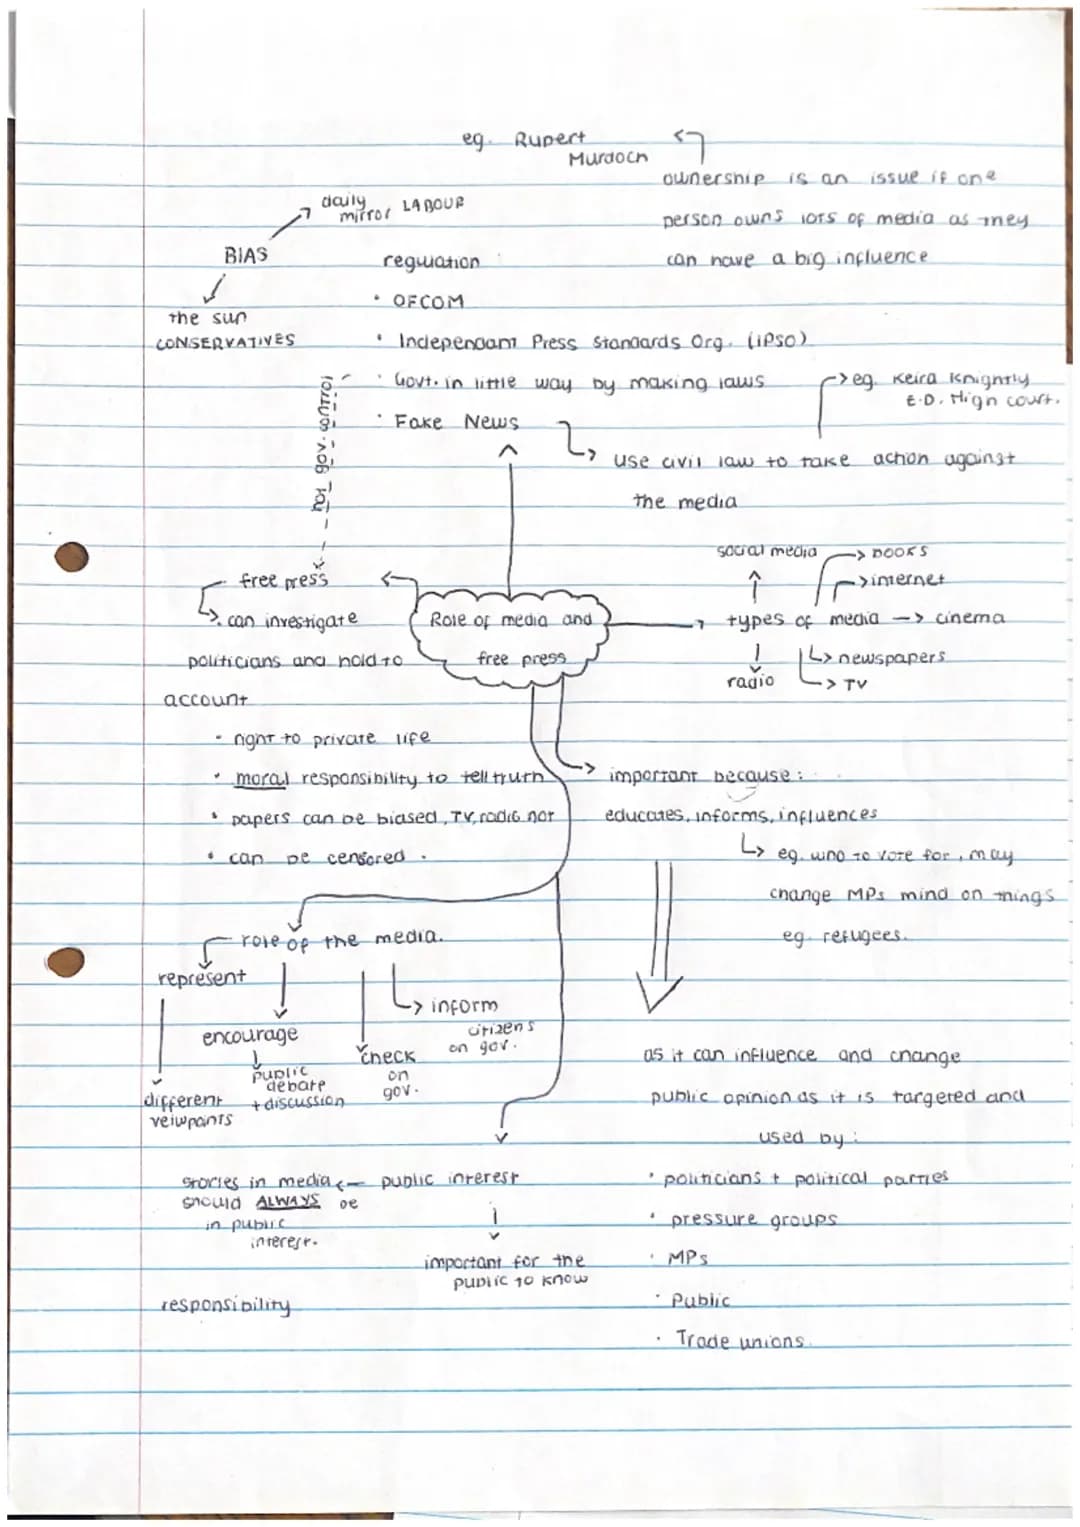 eg. Rupert
Murdoch
ownership is an issue if one
person owns lots of media as they
can have a big influence
daily
mirror LABOUR
BIAS
the sun
CONSERVATIVES
regulation :
• OFCOM
• Independant Press Standards Org. (IPSO)
• Govt. in little way by making laws
• Fake News
not gov. control
eg. Keira Knightly
E.D. High court.
use civil law to take action against
the media
free press
can investigate
politicians and hold to
account
• right to private life
• moral responsibility to tell truth
• papers can be biased, TV, radio not
• can be censored.
Role of media and
free press
social media
books
internet
types of media -> cinema
newspapers
radio
TV
important because:
educates, informs, influences
eg. who to vote for, may
change MPs mind on things
eg. refugees.
role of the media.
represent
different
veiwpoints
encourage
public
debate
+ discussion
check
on
gov.
inform
citizens
on gov.
as it can influence and change
public opinion as it is targeted and
used by:
• politicians + political parties
• pressure groups
• MPs
• Public
• Trade unions.
public interest
stories in media
should ALWAYS be
in public
interest.
important for the
public to know
responsibility